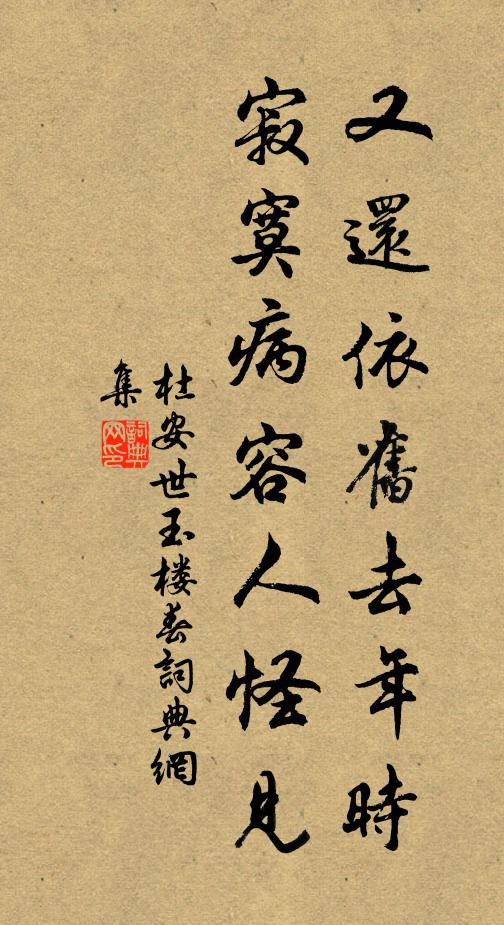 又還依舊去年時
寂寞病容人怪見
杜安世玉楼春詞典網
集
詞典
网印